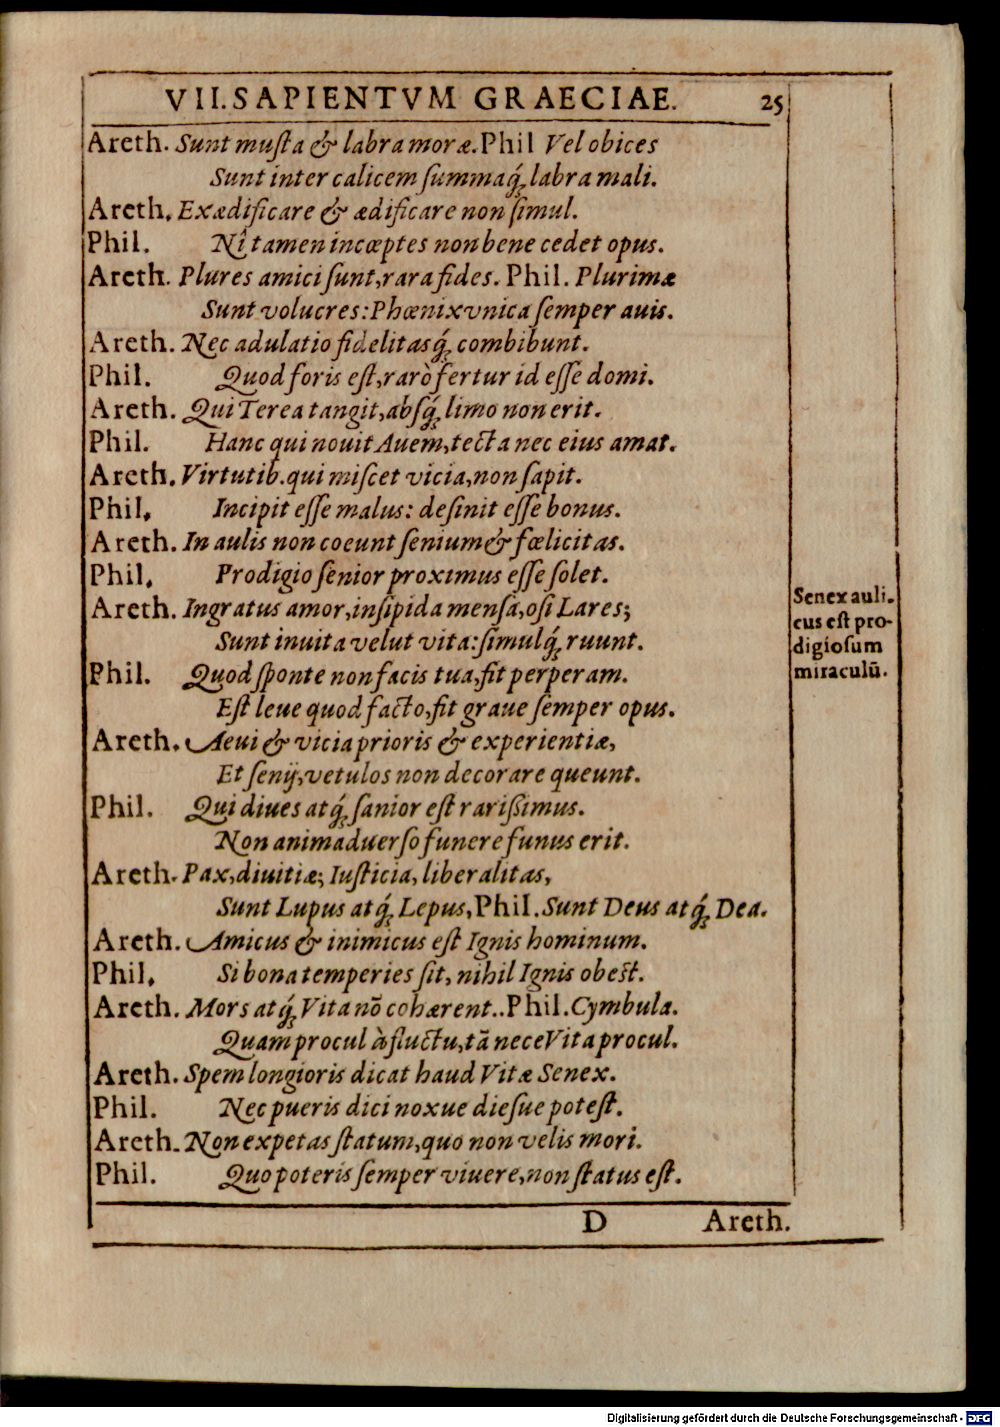 VII. SAPIENTVM GRAECIAE. 25
Areth. Sunt muſta & labra moræ. Phil Vel obices
Sunt inter calicem ſummaq́ꝫ labra mali.
Areth. Exædificare & ædificare non ſimul.
Phil. Nî tamen incœptes non bene cedet opus.
Areth. Plures amici ſunt, rara fides. Phil. Plurimæ
Sunt volucres: Phœnix vnica ſemper auis.
Areth. Nec adulatio fidelitasq́ꝫ combibunt.
Phil. Quod foris eſt, rarò fertur id eſſe domi.
Areth. Qui Terea tangit, abſq́ꝫ limo non erit.
Phil. Hanc qui nouit Auem, tecta nec eius amat.
Areth. Virtutib. qui miſcet vicia, non ſapit.
Phil. Incipit eſſe malus: deſinit eſſe bonus.
Areth. In aulis non coeunt ſenium & fœlicitas.
Phil. Prodigio ſenior proximus eſſe ſolet.
Areth. Ingratus amor, inſipida menſa, oſi Lares;
Sunt inuita velut vita: ſimulq́ꝫ ruunt.
Phil. Quod ſponte non facis tua, fit perperam.
Eſt leue quod facto, fit graue ſemper opus.
Areth. Aeui & vicia prioris & experientiæ,
Et ſenij, vetulos non decorare queunt.
Phil. Qui diues atq́ꝫ ſanior eſt rarißimus.
Non animaduerſo funere funus erit.
Areth. Pax, diuitiæ; Iuſticia, liberalitas,
Sunt Lupus atq́ꝫ Lepus, Phil. Sunt Deus atq́ꝫ Dea.
Areth. Amicus & inimicus eſt Ignis hominum.
Phil. Si bona temperies ſit, nihil Ignis obeſt.
Areth. Mors atq́ꝫ Vita nō cohærent.. Phil. Cymbula.
Quam procul à fluctu, tā nece Vita procul.
Areth. Spem longioris dicat haud Vitæ Senex.
Phil. Nec pueris dici noxue dieſue poteſt.
Areth. Non expetas ſtatum, quo non velis mori.
Phil. Quo poteris ſemper viuere, non ſtatus eſt.
Senex auli-
cus eſt pro-
digioſum
miraculū.
D Areth.
Digitalisierung gefördert durch die Deutsche Forschungsgemeinschaft - DFG